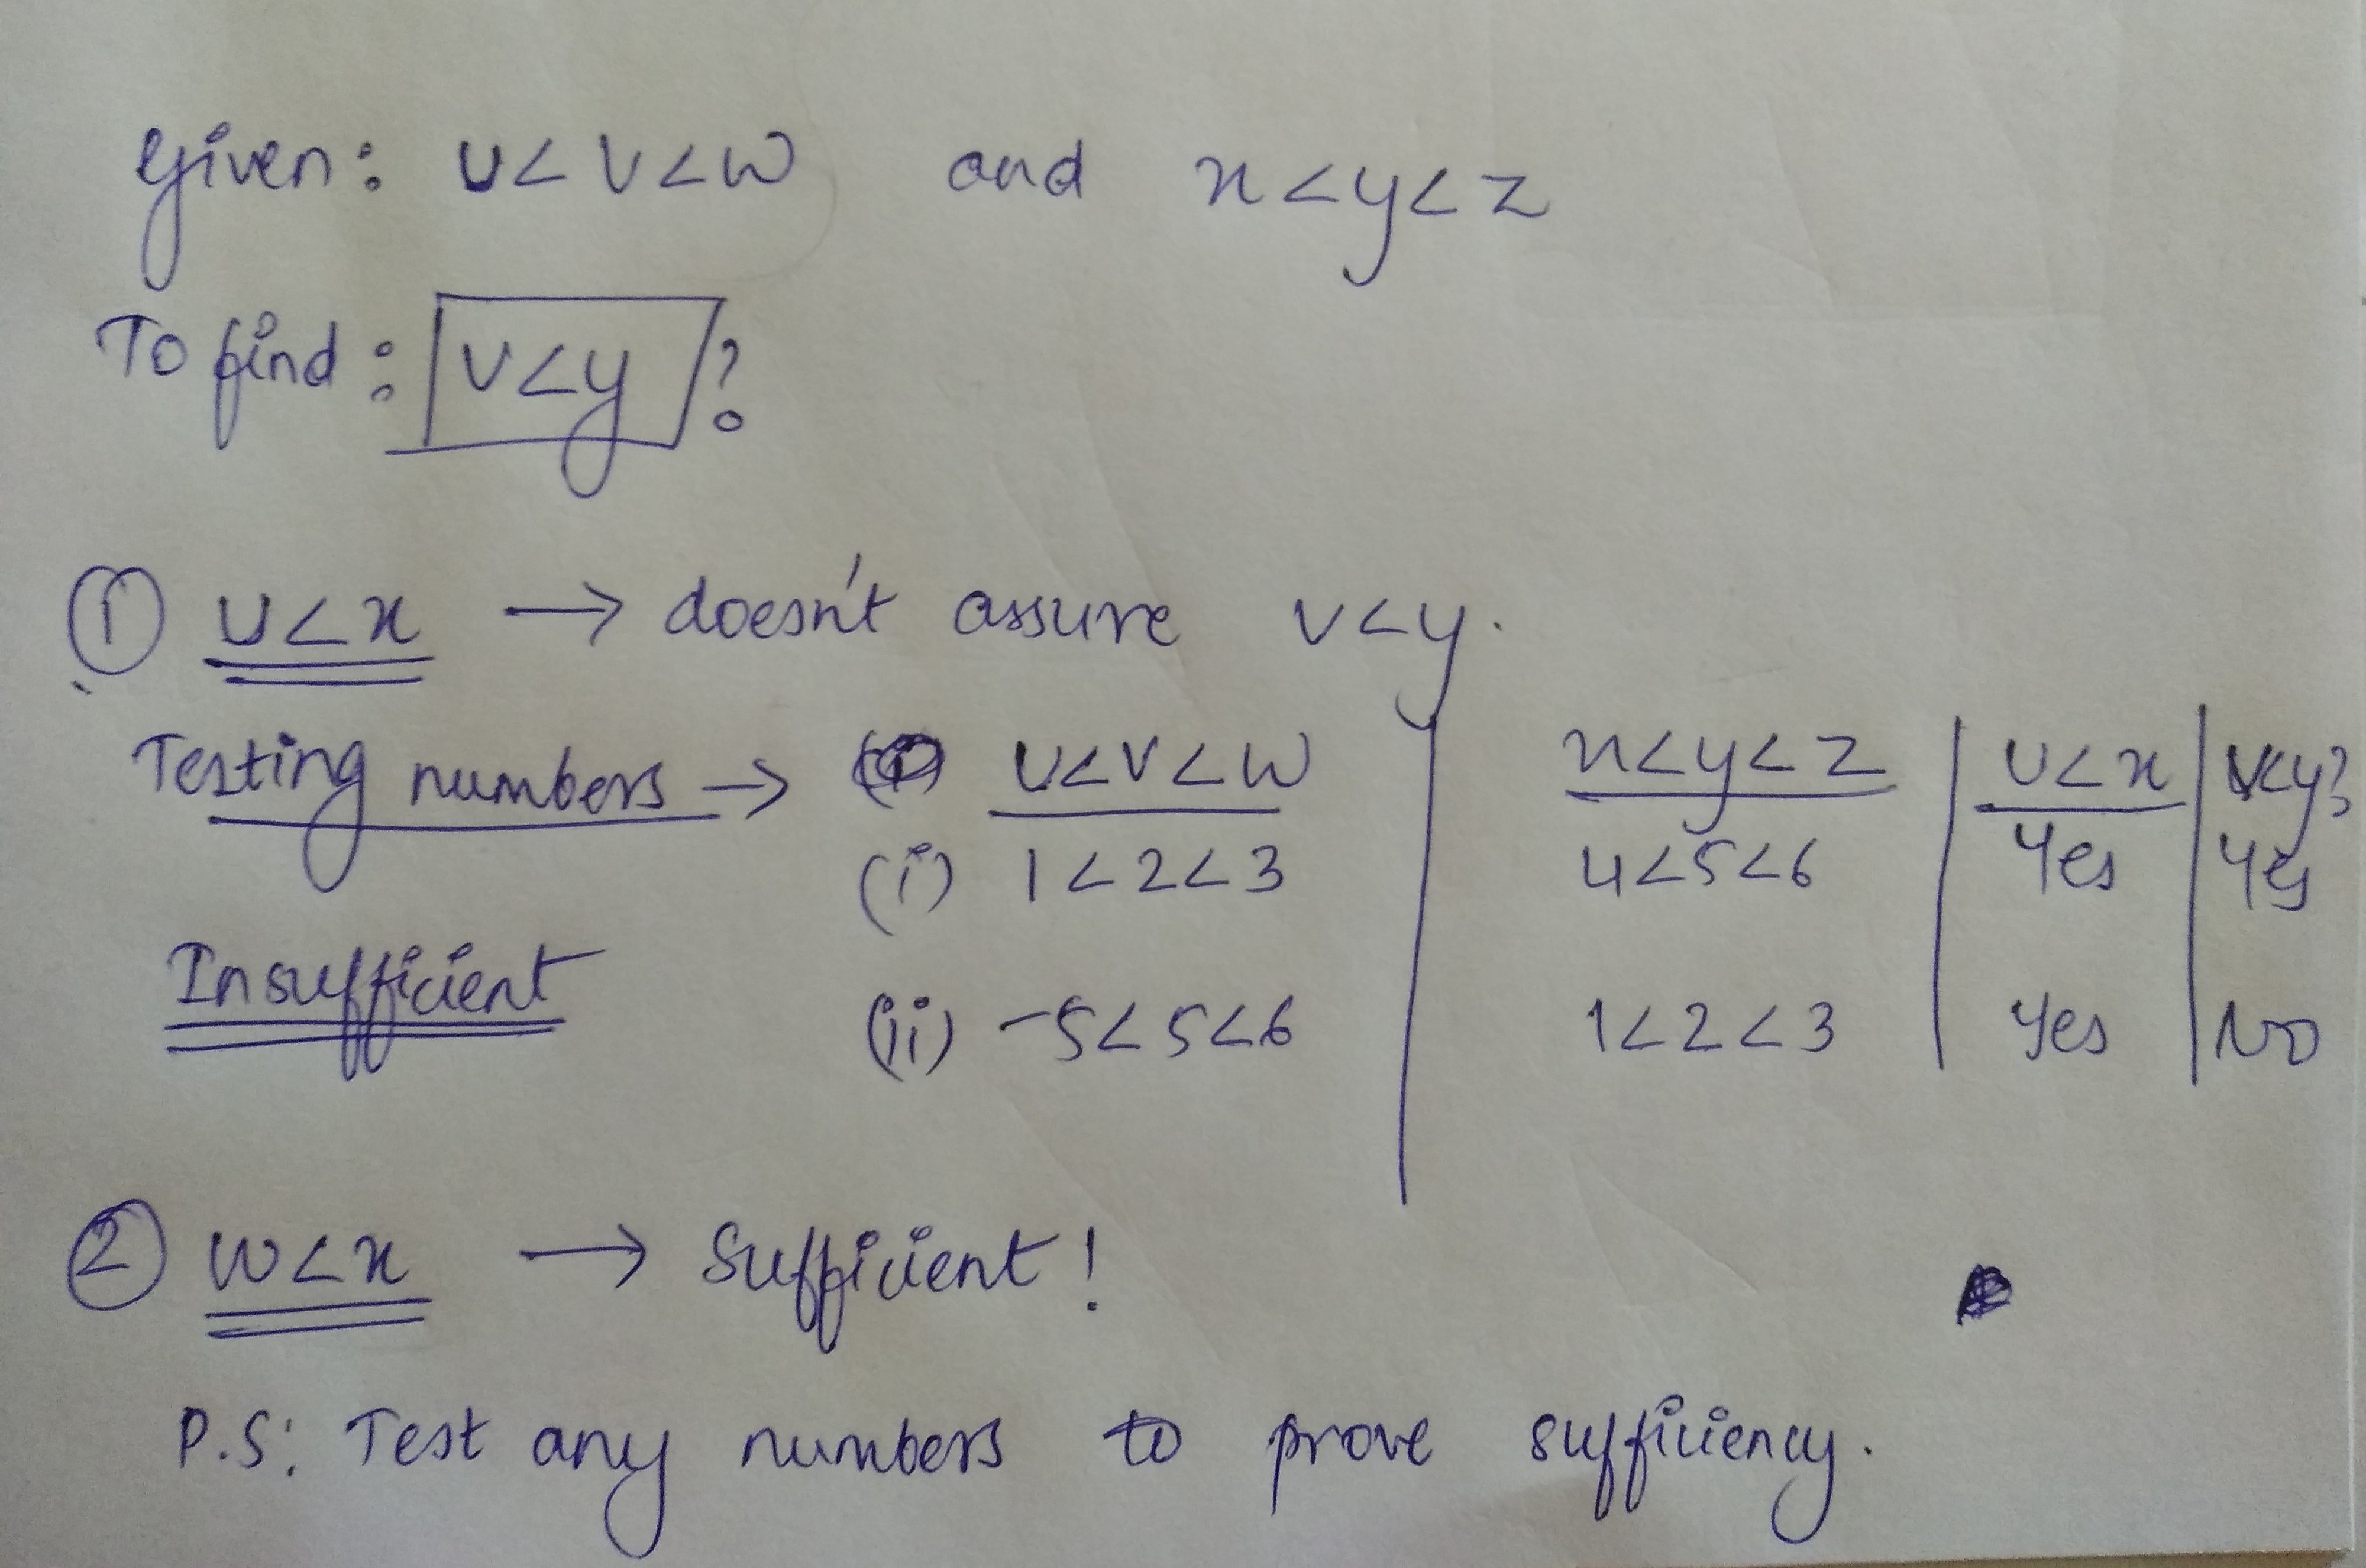 Given: U<V<W and x<y<z
To find: V<y ?
① U<x → doesn't assure V<y.
Testing numbers → U<V<W x<y<z U<x V<y?
(i) 1<2<3 4<5<6 Yes Yes
Insufficient
(ii) -5<5<6 1<2<3 Yes NO
② W<x → Sufficient!
P.S: Test any numbers to prove sufficiency.